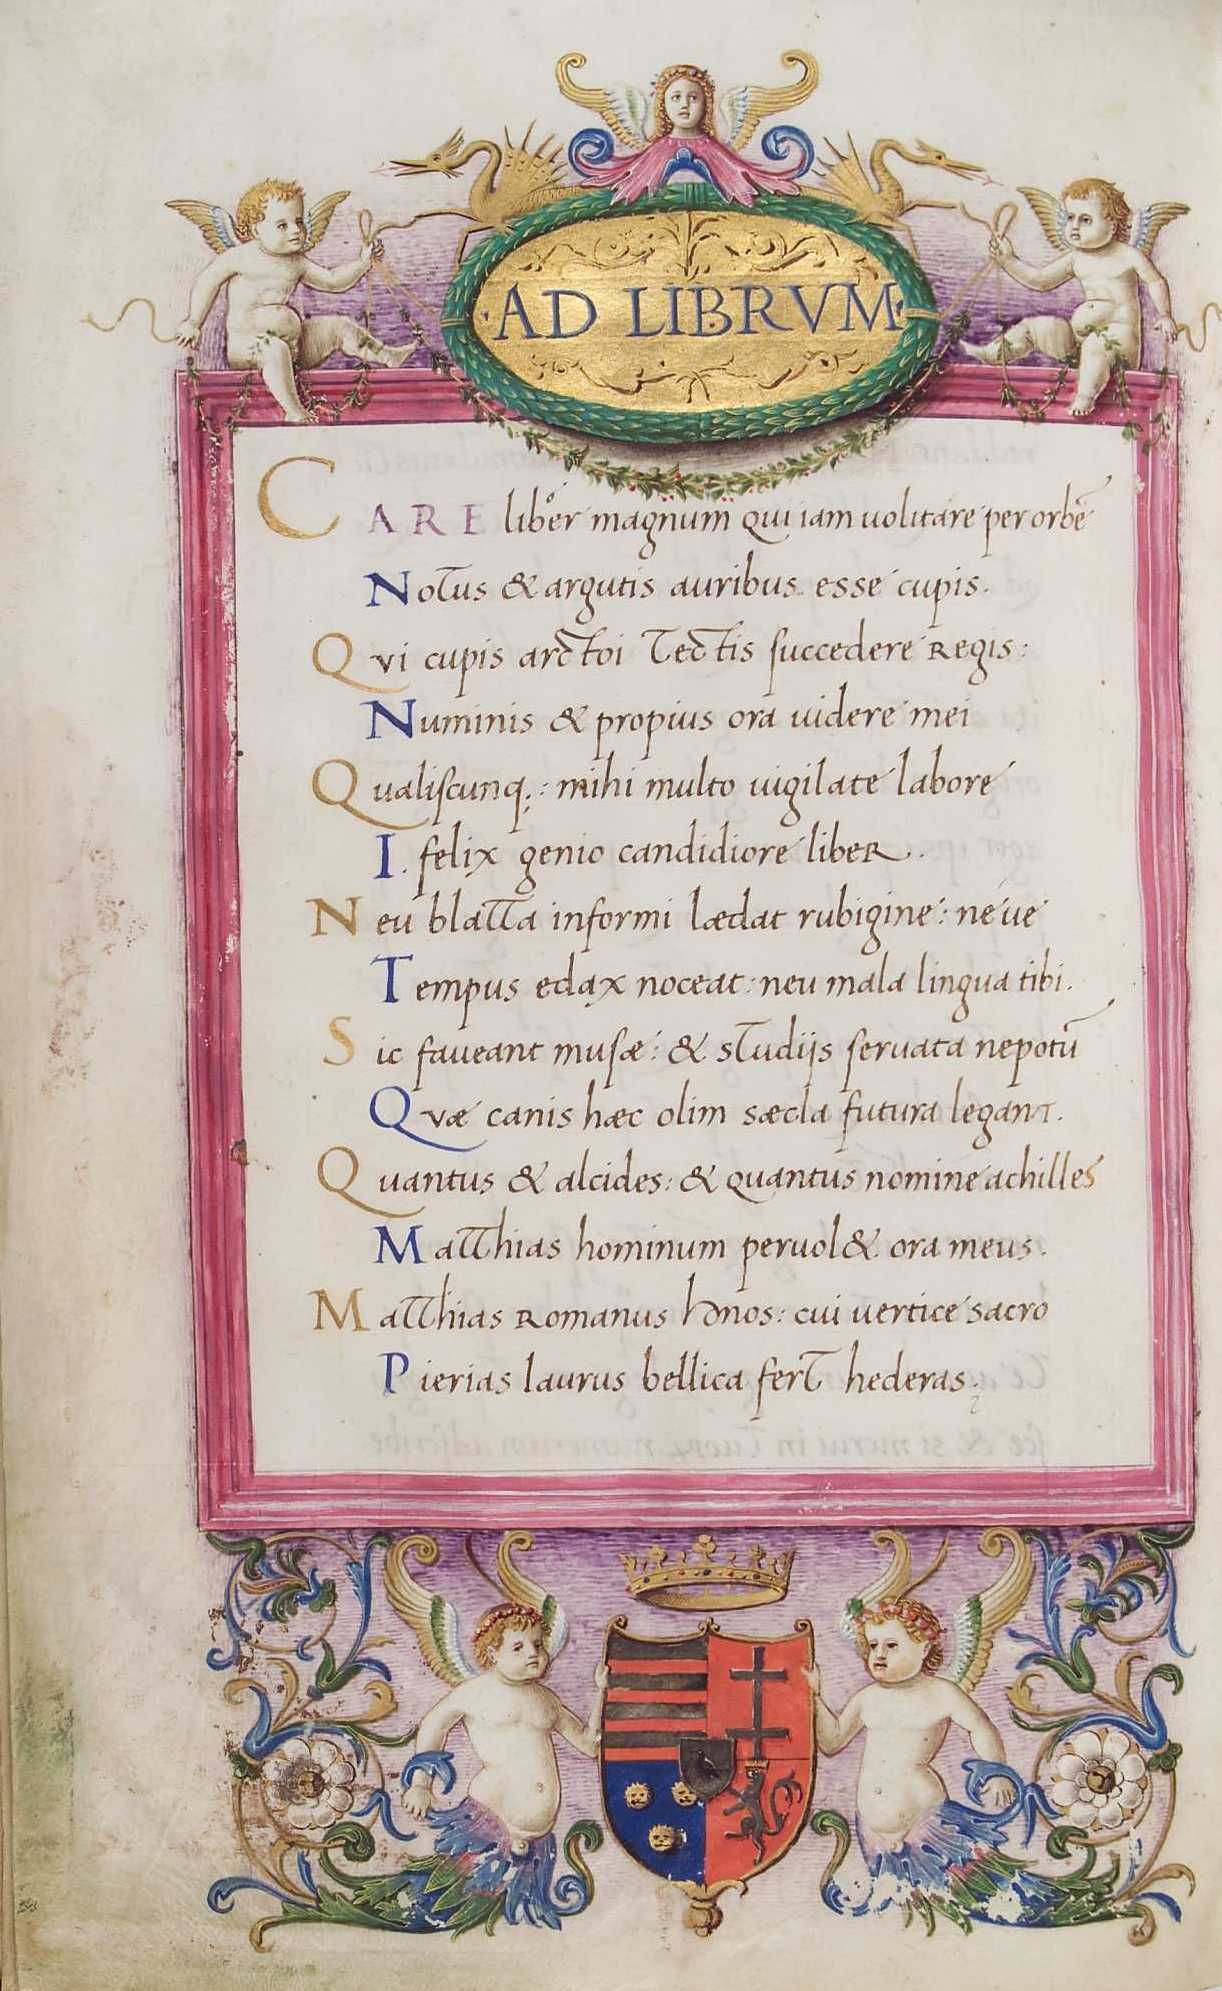 ·AD LIBRVM·
CARE liber magnum qui iam uolitare per orbē
Notus & argutis auribus esse cupis.
Qvi cupis arctoi tectis succedere Regis:
Numinis & propius ora uidere mei
Qualiscunq;: mihi multo uigilate labore
I. felix genio candidiore liber.
Neu blatta informi lædat rubigine: ne ue
Tempus edax noceat: neu mala lingua tibi.
Sic faueant musæ: & studijs seruata nepotū
Qvæ canis hæc olim sæcla futura legant.
Quantus & alcides: & quantus nomine achilles
Matthias hominum peruol& ora meus.
Matthias Romanus honos: cui uertice sacro
Pierias laurus bellica fert hederas;